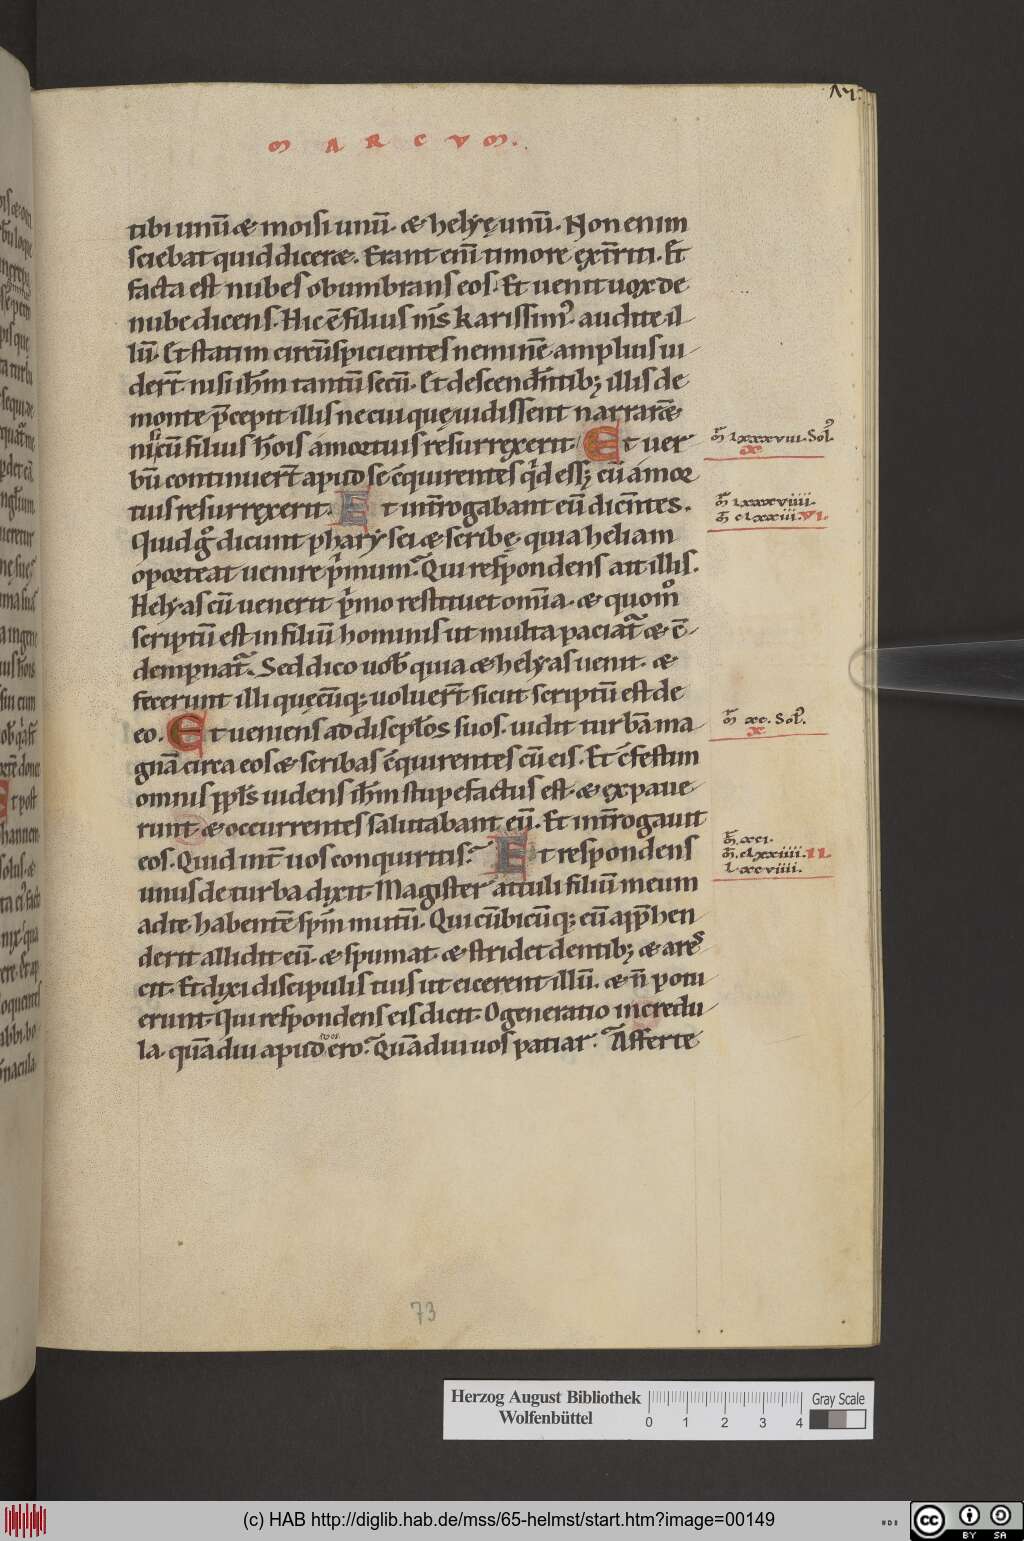 MARCVM.
tibi unū & moisi unū. & helyę unū. Non enim
sciebat quid dicer&. Erant enī timore ext̄riti. Et
facta est nubes obumbrans eos. Et uenit uox de
nube dicens. Hic ē filius m̄s karissim᾽. audite il
lū. Et statim circūspicientes neminē amplius ui
der̄t nisi ih̄m tantū secū. Et descendn̄tib; illis de
monte p̄cepit illis ne cui quę uidissent narrarēt
ni cū filius hōis a mortuis resurrexerit. Et uer
bū continuer̄t apud se c̄quirentes qd ess; cū a mor
tuis resurrexerit. Et int̄rogabant eū dicn̄tes.
Quid g̊ dicunt pharysei & scribę quia heliam
oporteat uenire p̄mum. Qui respondens ait illis.
Helyas cū uenerit p̄mo restituet om̄ia. & quom̊
scriptū est in filiū hominis ut multa paciat̄ & c̄
dempnat̄. Sed dico uob̄ quia & helyas uenit. &
fecerunt illi quęcūq; uoluer̄t sicut scriptū est de
eo. Et ueniens ad discipl̄os suos. uidit turbā ma
gnā circa eos & scribas c̄quirentes cū eis. Et c̄festim
omnis ppl̄s uidens ih̄m stupefactus est. & expaue
runt & occurrentes salutabant eū. Et int̄rogauit
eos. Quid int̄ uos conquiritis. Et respondens
unus de turba dixit. Magister attuli filiū meum
ad te habentē spm̄ mutū. Qui cūbicūq; eū app̄hen
derit allidit eū. & spumat. & stridet dentib; & ares
cit. Et dixi discipulis tuis ut eicerent illū. & n̄ potu
erunt. Qui respondens eis dicit. O generatio incredu
la. quādiu apud uos ero. Quādiu uos patiar. Afferte
m̄ lxxxviii. Sol̄.
x
m̄ lxxxviiii.
m̄ clxxiii. VI.
m̄ xc. Sol̄.
x.
m̄ xci.
m̄. clxxiiii. II.
l. xcviiii.
73
Herzog August Bibliothek
Wolfenbüttel
0 1 2 3 4
Gray Scale
(c) HAB http://diglib.hab.de/mss/65-helmst/start.htm?image=00149
cc BY SA